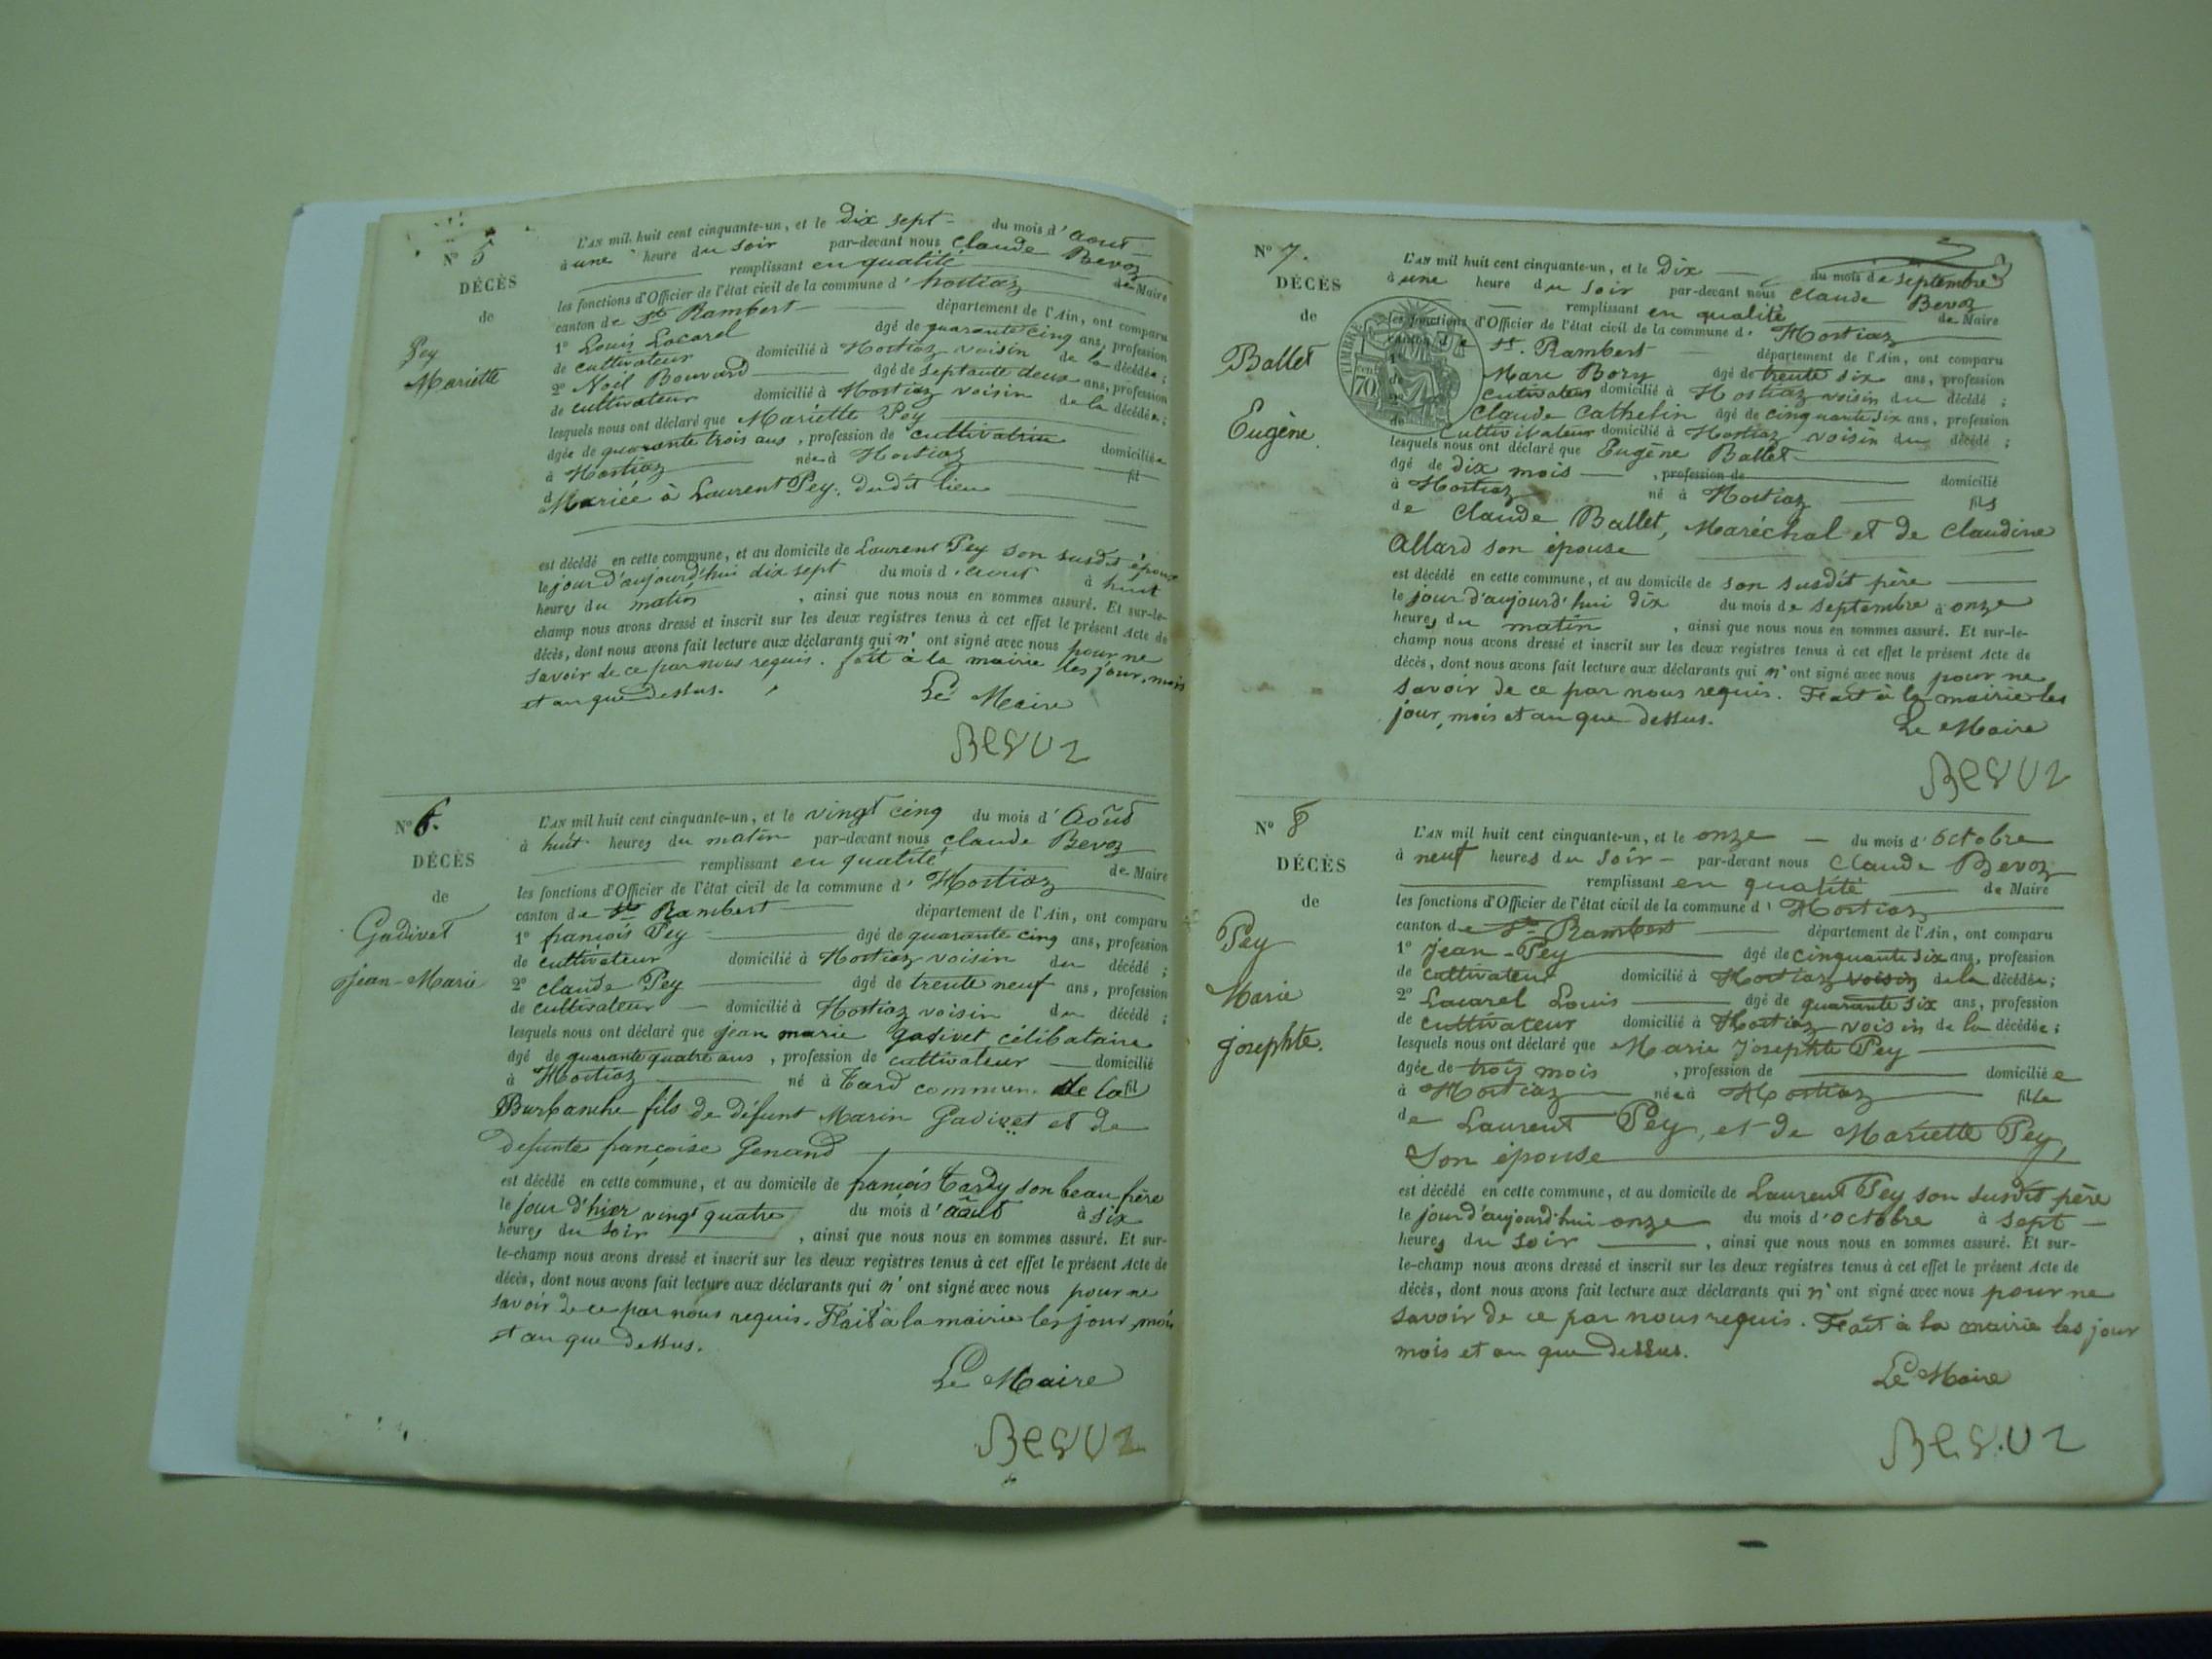 N° 5
DÉCÈS
de
Pey
Mariette
L'AN mil huit cent cinquante-un, et le dix sept du mois d'aout
à une heure du soir par-devant nous Claude Bevoz
remplissant en qualité de Maire
les fonctions d'Officier de l'état civil de la commune d'hostiaz
canton de St Rambert département de l'Ain, ont comparu
1° Louis Locarel âgé de quarante cinq ans, profession
de cultivateur domicilié à Hostiaz voisin de la décédée;
2° Noël Bouvard âgé de septante deux ans, profession
de cultivateur domicilié à Hostiaz voisin de la décédée;
lesquels nous ont déclaré que Mariette Pey
âgée de quarante trois ans, profession de cultivatrice domiciliée
à Hostiaz née à Hostiaz fil
d Mariée à Laurent Pey, dudit lieu
est décédé en cette commune, et au domicile de Laurent Pey son susdit époux
le jour d'aujourd'hui dix sept du mois d'aout à huit
heures du matin, ainsi que nous nous en sommes assuré. Et sur-le-
champ nous avons dressé et inscrit sur les deux registres tenus à cet effet le présent Acte de
décès, dont nous avons fait lecture aux déclarants qui n'ont signé avec nous pour ne
savoir de ce par nous requis. fait à la mairie les jour, mois
et an que dessus.
Le Maire
Bevoz
N° 6.
DÉCÈS
de
Gadivet
jean-Marie
L'AN mil huit cent cinquante-un, et le vingt cinq du mois d'Août
à huit heures du matin par-devant nous Claude Bevoz
remplissant en qualité de Maire
les fonctions d'Officier de l'état civil de la commune d'Hostiaz
canton de St Rambert département de l'Ain, ont comparu
1° françois Pey âgé de quarante cinq ans, profession
de cultivateur domicilié à Hostiaz voisin du décédé;
2° claude Pey âgé de trente neuf ans, profession
de cultivateur domicilié à Hostiaz voisin du décédé;
lesquels nous ont déclaré que jean marie gadivet célibataire
âgé de quarante quatre ans, profession de cultivateur domicilié
à Hostiaz né à Tard commun. de la fil
Burbanche fils de défunt Marin Gadivet et de
defunte françoise Genand
est décédé en cette commune, et au domicile de françois Tardy son beau frère
le jour d'hier vingt quatre du mois d'août à six
heures du soir, ainsi que nous nous en sommes assuré. Et sur-
le-champ nous avons dressé et inscrit sur les deux registres tenus à cet effet le présent Acte de
décès, dont nous avons fait lecture aux déclarants qui n'ont signé avec nous pour ne
savoir de ce par nous requis. Fait à la mairie les jour, mois
et an que dessus.
Le Maire
Bevoz
N° 7.
DÉCÈS
de
Ballet
Eugène.
TIMBRE
70
L'AN mil huit cent cinquante-un, et le dix du mois de septembre
à une heure du soir par-devant nous Claude Bevoz
remplissant en qualité de Maire
les fonctions d'Officier de l'état civil de la commune d'Hostiaz
canton de St. Rambert département de l'Ain, ont comparu
Marc Bory âgé de trente six ans, profession
cutivateur domicilié à Hostiaz voisin du décédé;
Claude Cathelin âgé de cinquante six ans, profession
de Cultivateur domicilié à Hostiaz voisin du décédé;
lesquels nous ont déclaré que Eugène Ballet
âgé de dix mois, profession de domicilié
à Hostiaz né à Hostiaz fils
de Claude Ballet, Maréchal et de Claudine
Allard son épouse
est décédé en cette commune, et au domicile de son susdit père
le jour d'aujourd'hui dix du mois de septembre à onze
heures du matin, ainsi que nous nous en sommes assuré. Et sur-le-
champ nous avons dressé et inscrit sur les deux registres tenus à cet effet le présent Acte de
décès, dont nous avons fait lecture aux déclarants qui n'ont signé avec nous pour ne
savoir de ce par nous requis. Fait à la mairie les
jour, mois et an que dessus.
Le Maire
Bevoz
N° 8
DÉCÈS
de
Pey
Marie
josephte.
L'AN mil huit cent cinquante-un, et le onze du mois d'octobre
à neuf heures du soir par-devant nous Claude Bevoz
remplissant en qualité de Maire
les fonctions d'Officier de l'état civil de la commune d'Hostiaz
canton de St Rambert département de l'Ain, ont comparu
1° jean-Pey âgé de cinquante six ans, profession
de cultivateur domicilié à Hostiaz voisin de la décédée;
2° Locarel Louis âgé de quarante six ans, profession
de cultivateur domicilié à Hostiaz voisin de la décédée;
lesquels nous ont déclaré que Marie Josephte Pey
âgée de trois mois, profession de domiciliée
à Hostiaz née à Hostiaz fille
de Laurent Pey, et de Mariette Pey,
Son épouse
est décédé en cette commune, et au domicile de Laurent Pey son susdit père
le jour d'aujourd'hui onze du mois d'octobre à sept
heures du soir, ainsi que nous nous en sommes assuré. Et sur-
le-champ nous avons dressé et inscrit sur les deux registres tenus à cet effet le présent Acte de
décès, dont nous avons fait lecture aux déclarants qui n'ont signé avec nous pour ne
savoir de ce par nous requis. Fait à la mairie les jour
mois et an que dessus.
Le Maire
Bevoz